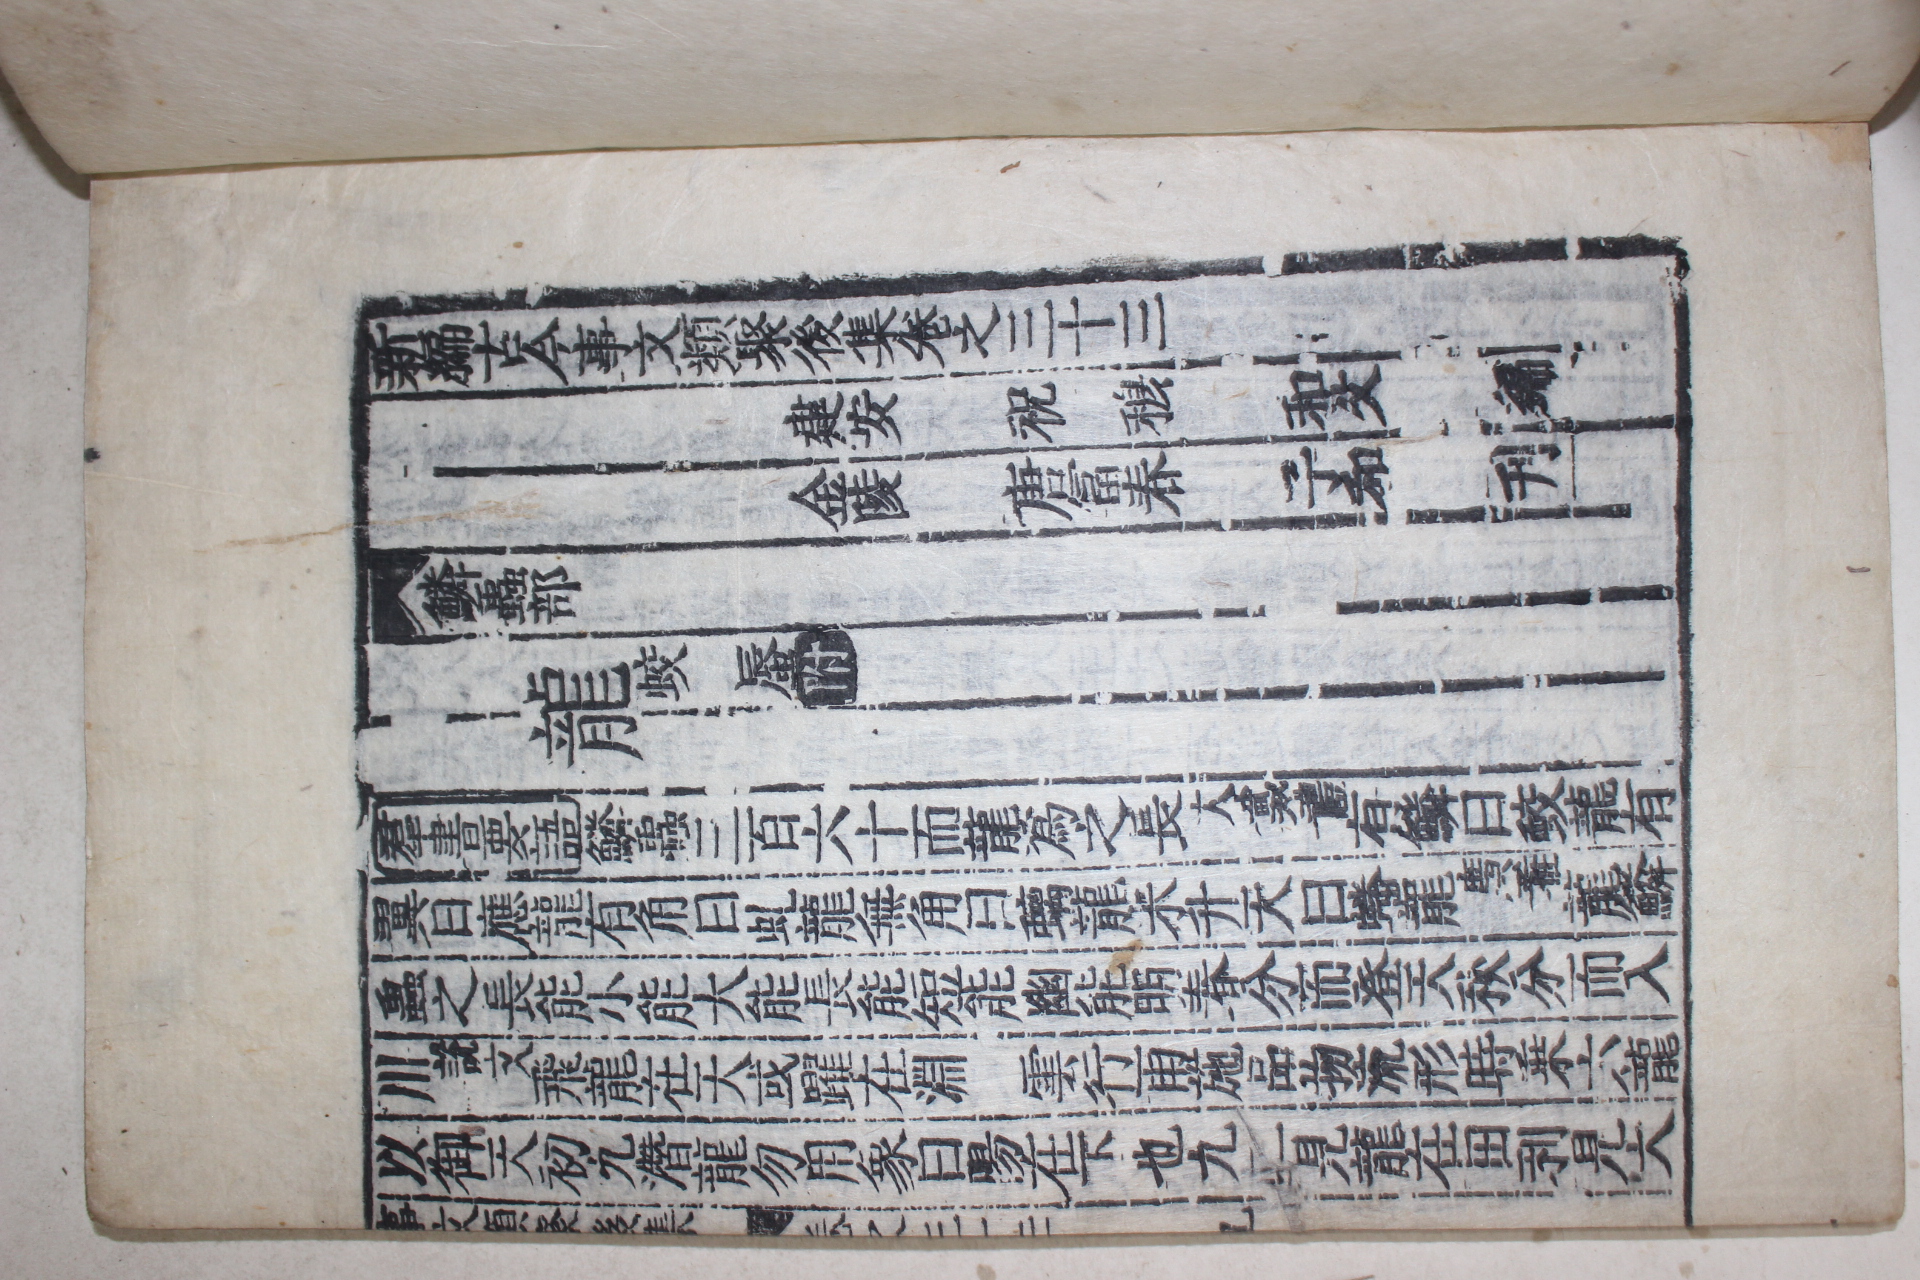 新編古今事文類聚後集卷之三十三
建安 祝 穆 和父 編
金陵 唐富春 子和 刊
鱗蟲部
龍 蛟 蜃附
羣書要語鱗蟲三百六十而龍爲之長大戴禮有鱗曰蛟龍有
翼曰應龍有角曰虬龍無角曰螭龍未升天曰蟠龍廣雅龍鱗
蟲之長能小能大能長能短能幽能明春分而登天秋分而入
川說文飛龍在天或躍在淵 雲行雨施品物流形時乘六龍
以御天初九潛龍勿用象曰陽在下也九二見龍在田利見大
事文類聚後集 卷之三十三